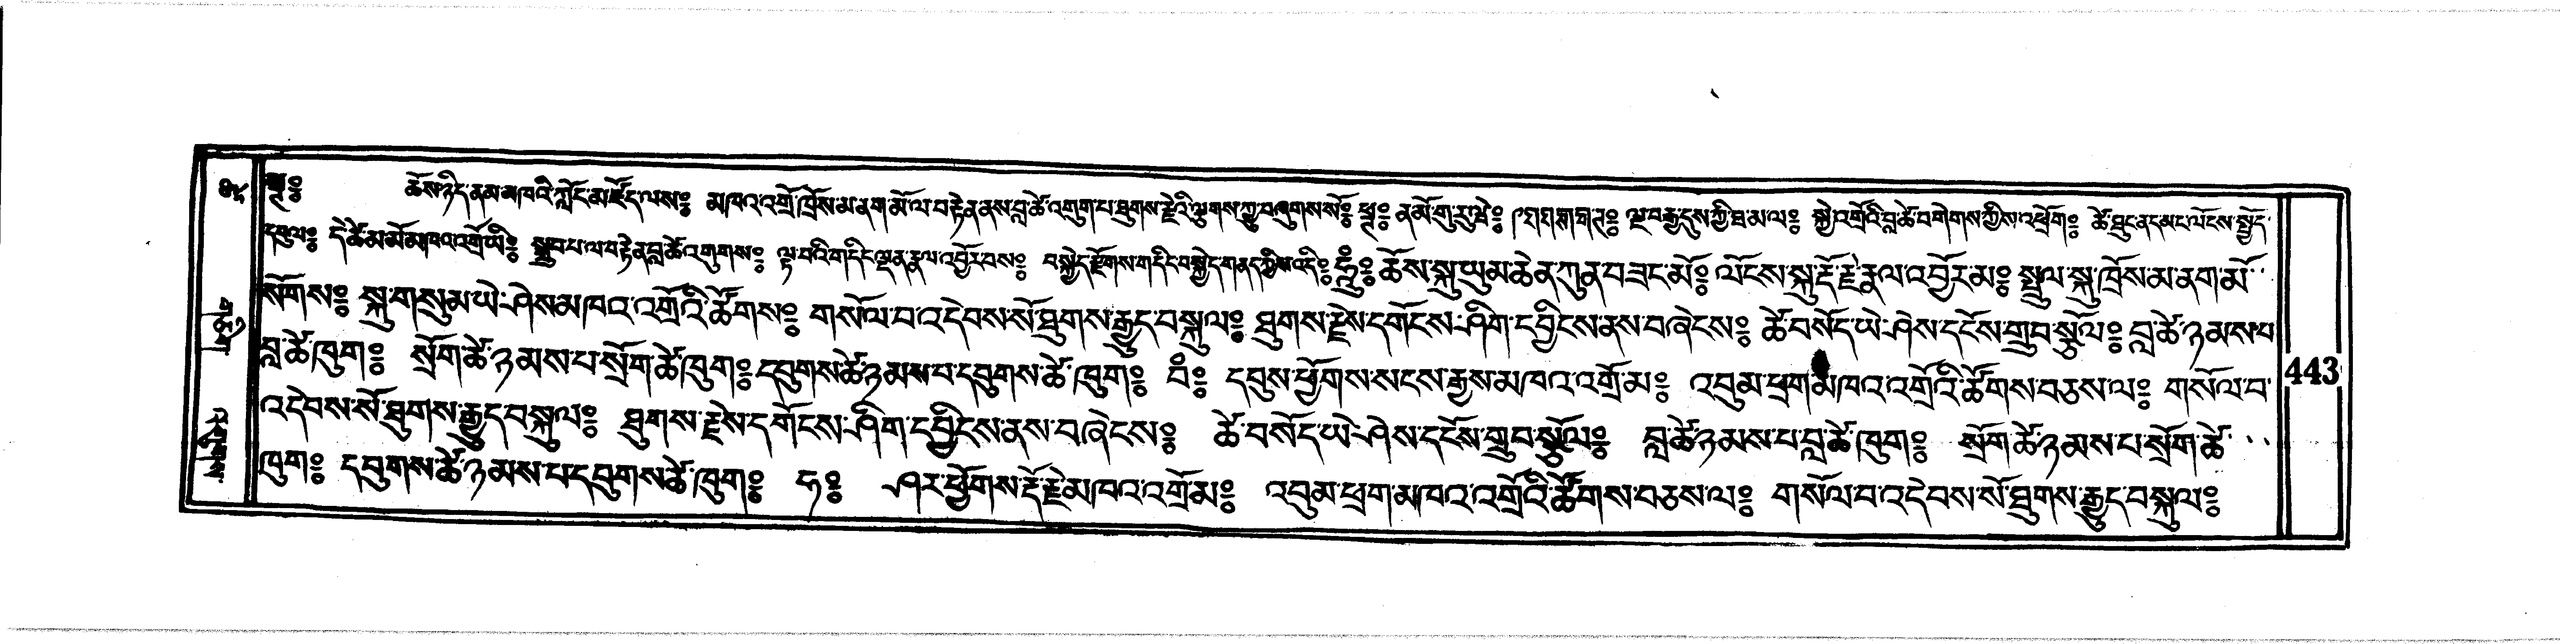 ༄༔ ཆོས་ཉིད་ནམ་མཁའི་ཀློང་མཛོད་ལས༔ མཁའ་འགྲོ་ཁྲོས་མ་ནག་མོ་ལ་བརྟེན་ནས་བླ་ཚེ་འགུག་པ་ཐུགས་རྗེའི་ལྕགས་ཀྱུ་བཞུགས་སོ༔ ན་མོ་གུ་རུ་ཝེ༔ ལྔ་བརྒྱ་དུས་ཀྱི་ཐ་མ་ལ༔ སྐྱེ་འགྲོའི་བླ་ཚེ་བགེགས་ཀྱིས་འཕྲོག༔ ཚེ་ཐུང་ནད་མང་ལོངས་སྤྱོད་
དབུལ༔ དེ་ཚེ་མ་མོ་མཁའ་འགྲོ་ཡི༔ སྒྲུབ་པ་ལ་བརྟེན་བླ་ཚེ་འགུགས༔ ལྟ་བའི་གདིང་ལྡན་རྣལ་འབྱོར་བས༔ བསྐྱེད་རྫོགས་གདིང་བསྐྱེད་གནད་ཀྱིས་འདི༔ ཧཱུྃ༔ ཆོས་སྐུ་ཡུམ་ཆེན་ཀུན་བཟང་མོ༔ ལོངས་སྐུ་རྡོ་རྗེ་རྣལ་འབྱོར་མ༔ སྤྲུལ་སྐུ་ཁྲོས་མ་ནག་མོ་
སོགས༔ སྐུ་གསུམ་ཡེ་ཤེས་མཁའ་འགྲོའི་ཚོགས༔ གསོལ་བ་འདེབས་སོ་ཐུགས་རྒྱུད་བསྐུལ༔ ཐུགས་རྗེས་དགོངས་ཤིག་དབྱིངས་ནས་བཞེངས༔ ཚེ་བསོད་ཡེ་ཤེས་དངོས་གྲུབ་སྩོལ༔ བླ་ཚེ་ཉམས་པ
བླ་ཚེ་ཁུག༔ སྲོག་ཚེ་ཉམས་པ་སྲོག་ཚེ་ཁུག༔ དབུགས་ཚེ་ཉམས་པ་དབུགས་ཚེ་ཁུག༔ བཾ༔ དབུས་ཕྱོགས་སངས་རྒྱས་མཁའ་འགྲོ་མ༔ འབུམ་ཕྲག་མཁའ་འགྲོའི་ཚོགས་བཅས་ལ༔ གསོལ་བ་
འདེབས་སོ་ཐུགས་རྒྱུད་བསྐུལ༔ ཐུགས་རྗེས་དགོངས་ཤིག་དབྱིངས་ནས་བཞེངས༔ ཚེ་བསོད་ཡེ་ཤེས་དངོས་གྲུབ་སྩོལ༔ བླ་ཚེ་ཉམས་པ་བླ་ཚེ་ཁུག༔ སྲོག་ཚེ་ཉམས་པ་སྲོག་ཚེ་
ཁུག༔ དབུགས་ཚེ་ཉམས་པ་དབུགས་ཚེ་ཁུག༔ ཧ༔ ཤར་ཕྱོགས་རྡོ་རྗེ་མཁའ་འགྲོ་མ༔ འབུམ་ཕྲག་མཁའ་འགྲོའི་ཚོགས་བཅས་ལ༔ གསོལ་བ་འདེབས་སོ་ཐུགས་རྒྱུད་བསྐུལ༔
443